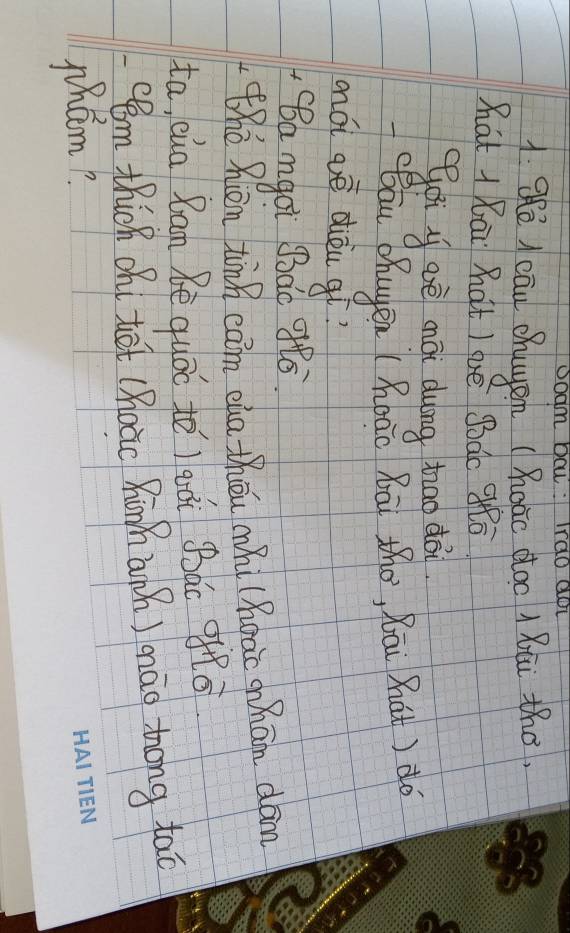 Soạn bài: Trao đổi
1. Kể 1 câu chuyện (hoặc đọc 1 bài thơ,
hát 1 bài hát) về Bác Hồ
Gợi ý về nội dung trao đổi.
- Câu chuyện (hoặc bài thơ, bài hát) đó
nói về điều gì?
+ Ca ngợi Bác Hồ.
+ Thể hiện tình cảm của thiếu nhi (hoặc nhân dân
ta, của bạn bè quốc tế) với Bác Hồ.
- Em thích chi tiết (hoặc hình ảnh) nào trong tác
phẩm?
HAI TIEN